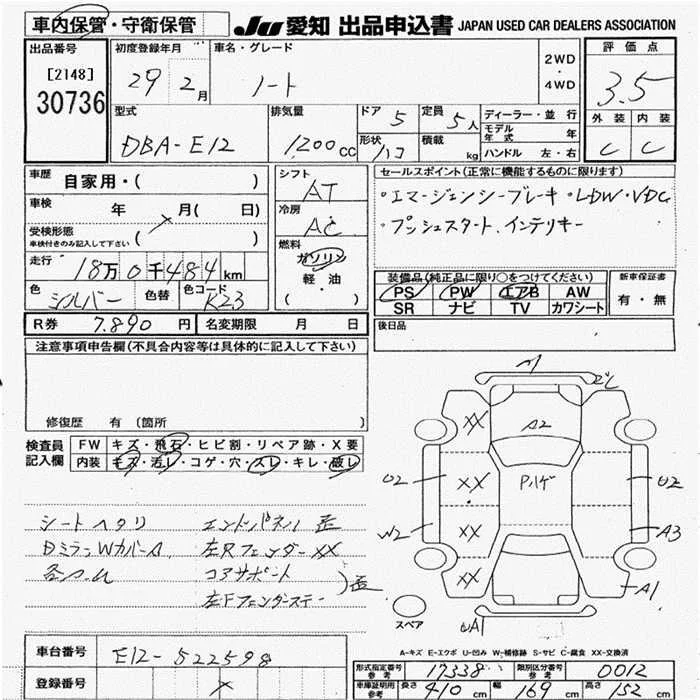 車内保管・守衛保管
JU 愛知 出品申込書 JAPAN USED CAR DEALERS ASSOCIATION
出品番号
[2148]
30736
初度登録年月
29 2月
車名・グレード
ノート
2WD
・
4WD
評価点
3.5
外装 内装
C C
型式
DBA-E12
排気量
1,200cc
ドア 5
定員 5人
形状 ハコ
積載 kg
ディーラー・並行
モデル年式 年
ハンドル 左・右
車歴 自家用・( )
車検 年 月( 日)
受検形態
車検付きのみ記入して下さい ( )
走行 18万0千484km
色 シルバー 色替 色コード K23
シフト
AT
冷房
AC
燃料
ガソリン
軽・油
( )
セールスポイント(正常に機能するものに限ります)
・エマージェンシーブレーキ・LDW・VDC
プッシュスタート、インテリキー
装備品(純正品に限り○をつけてください)
PS PW エアB AW
SR ナビ TV カワシート
新車保証書
有・無
R券 7.890円 名変期限 月 日
後日品
注意事項申告欄(不具合内容等は具体的に記入して下さい)
修復歴 有 〔箇所 〕
検査員記入欄
FW キズ・飛石・ヒビ割・リペア跡・X要
内装 キズ・汚レ・コゲ・穴・スレ・キレ・破レ
シートヘタリ エンドパネル 歪
日ミラーWカバーA. 左Rフェンダー XX
コアサポート
左Fフェンダーステー )歪
XX A2
U2 XX P.ハゲ U2
W2 A3
XX A1
スペア
A-キズ E-エクボ U-凹み W-補修跡 S-サビ C-腐食 XX-交換済
車台番号 E12-522598
登録番号
形式指定番号 参考 17338 類別区分番号 参考 0012
車庫証明用 参考 長さ 410cm 幅 169cm 高さ 152cm